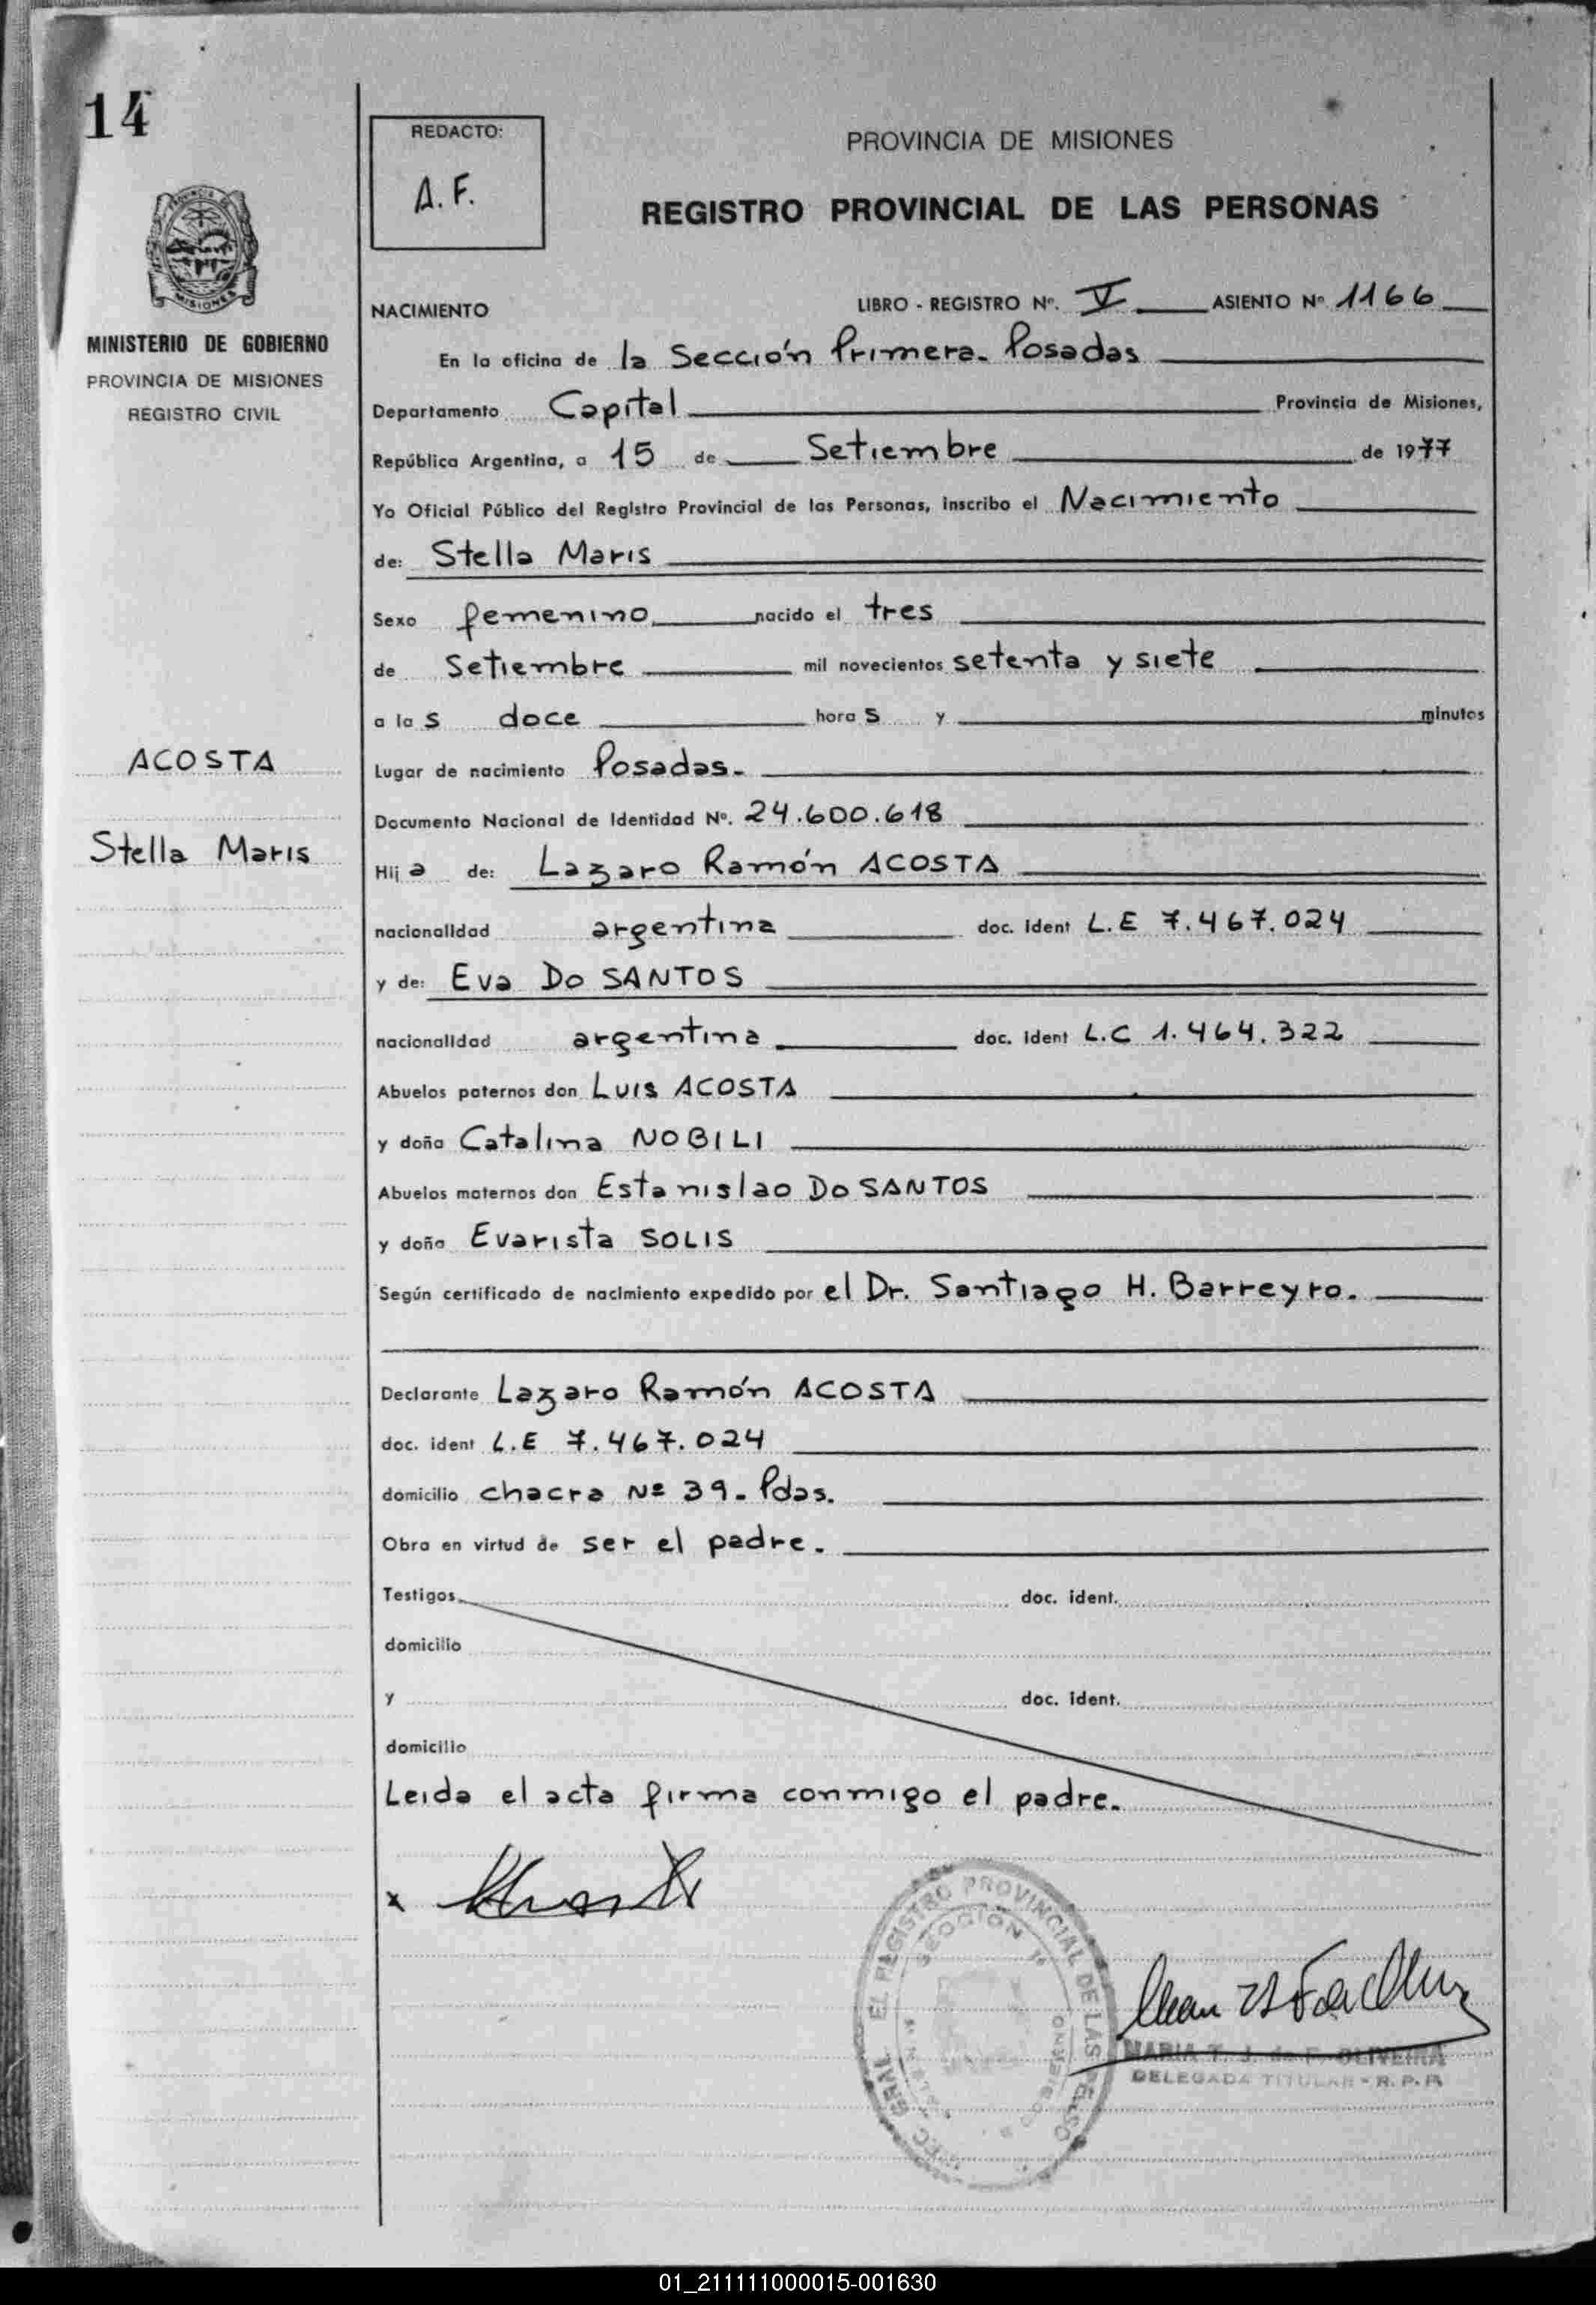 14
REDACTO:
A.F.
PROVINCIA DE MISIONES
REGISTRO PROVINCIAL DE LAS PERSONAS
MISIONES
MINISTERIO DE GOBIERNO
PROVINCIA DE MISIONES
REGISTRO CIVIL
NACIMIENTO
LIBRO - REGISTRO Nº. V ASIENTO Nº 1166
En la oficina de la Sección Primera. Posadas
Departamento Capital Provincia de Misiones,
República Argentina, a 15 de Setiembre de 1977
Yo Oficial Público del Registro Provincial de las Personas, inscribo el Nacimiento
de: Stella Maris
Sexo femenino nacido el tres
de Setiembre mil novecientos setenta y siete
a las doce horas y minutos
ACOSTA
Lugar de nacimiento Posadas.
Documento Nacional de Identidad Nº. 24.600.618
Stella Maris
Hija de: Lazaro Ramón ACOSTA
nacionalidad argentina doc. ident L.E 7.467.024
y de: Eva Do SANTOS
nacionalidad argentina doc. ident L.C 1.464.322
Abuelos paternos don Luis ACOSTA
y doña Catalina NOBILI
Abuelos maternos don Estanislao Do SANTOS
y doña Evarista SOLIS
Según certificado de nacimiento expedido por el Dr. Santiago H. Barreyro.
Declarante Lazaro Ramón ACOSTA
doc. ident L.E 7.467.024
domicilio chacra Nº 39. Pdas.
Obra en virtud de ser el padre.
Testigos doc. ident.
domicilio
y doc. ident.
domicilio
Leida el acta firma conmigo el padre.
x
EL REGISTRO PROVINCIAL DE LAS
SECCION 1ª
MARIA T. J. de F. OLIVEIRA
DELEGADA TITULAR - R.P.P.
01_211111000015-001630